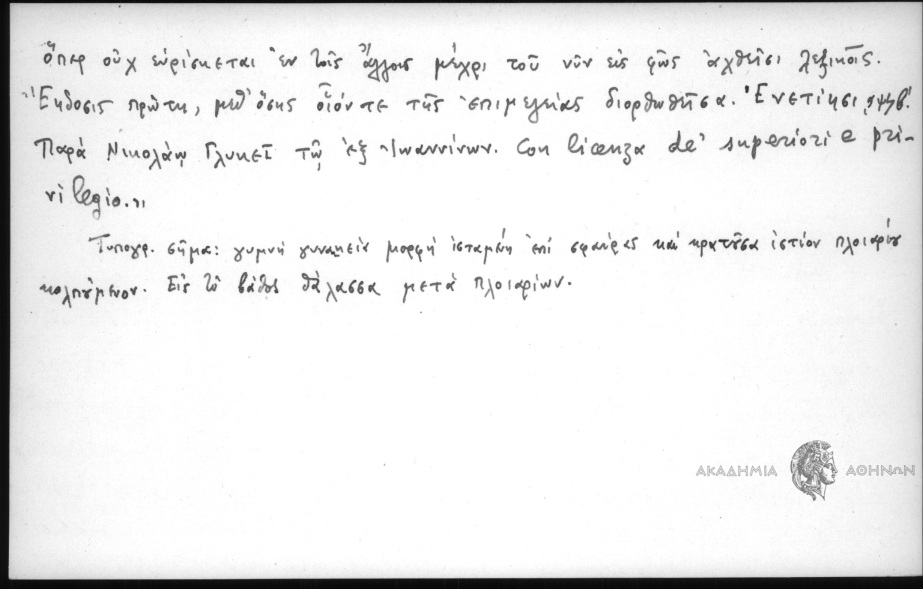 ὅπερ οὐχ εὑρίσκεται ἐν τοῖς ἄλλοις μέχρι τοῦ νῦν εἰς φῶς ἀχθεῖσι λεξικοῖς.
Ἔκδοσις πρώτη, μεθ' ὅσης οἷόν τε τῆς ἐπιμελείας διορθωθεῖσα. Ἐνετίησι
Παρὰ Νικολάῳ Γλυκεῖ τῷ ἐξ Ἰωαννίνων. Con licenza de' superiori e pri-
vilegio.„
Τυπογρ. σῆμα: γυμνή γυναικεία μορφή ἱσταμένη ἐπί σφαίρας καί κρατοῦσα ἱστίον πλοιαρίου
κολπούμενον. Εἰς τό βάθος θάλασσα μετά πλοιαρίων.
ΑΚΑΔΗΜΙΑ ΑΘΗΝΩΝ